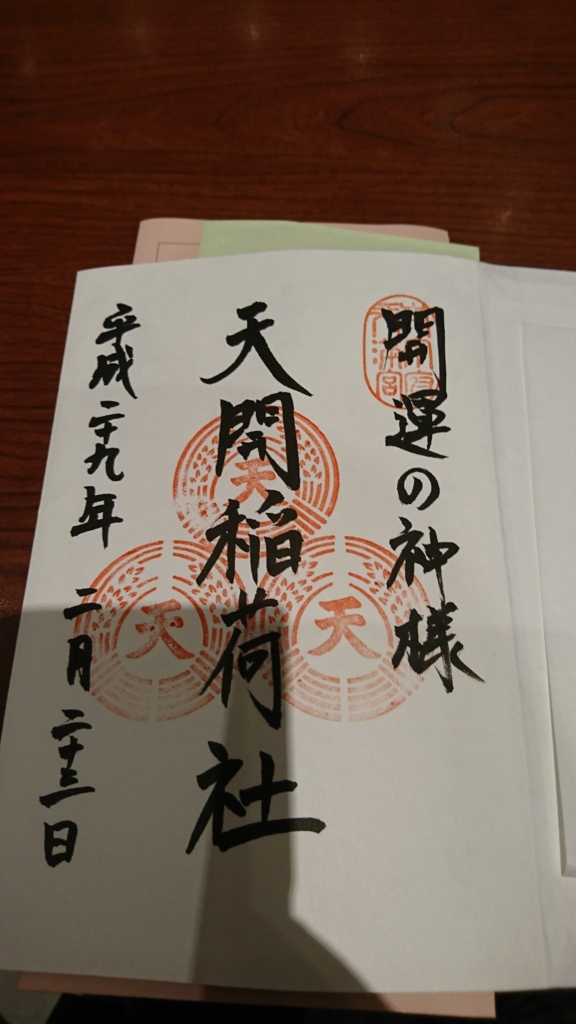 開運の神様
天開稲荷社
平成二十九年 二月 二十三日
天
天
天